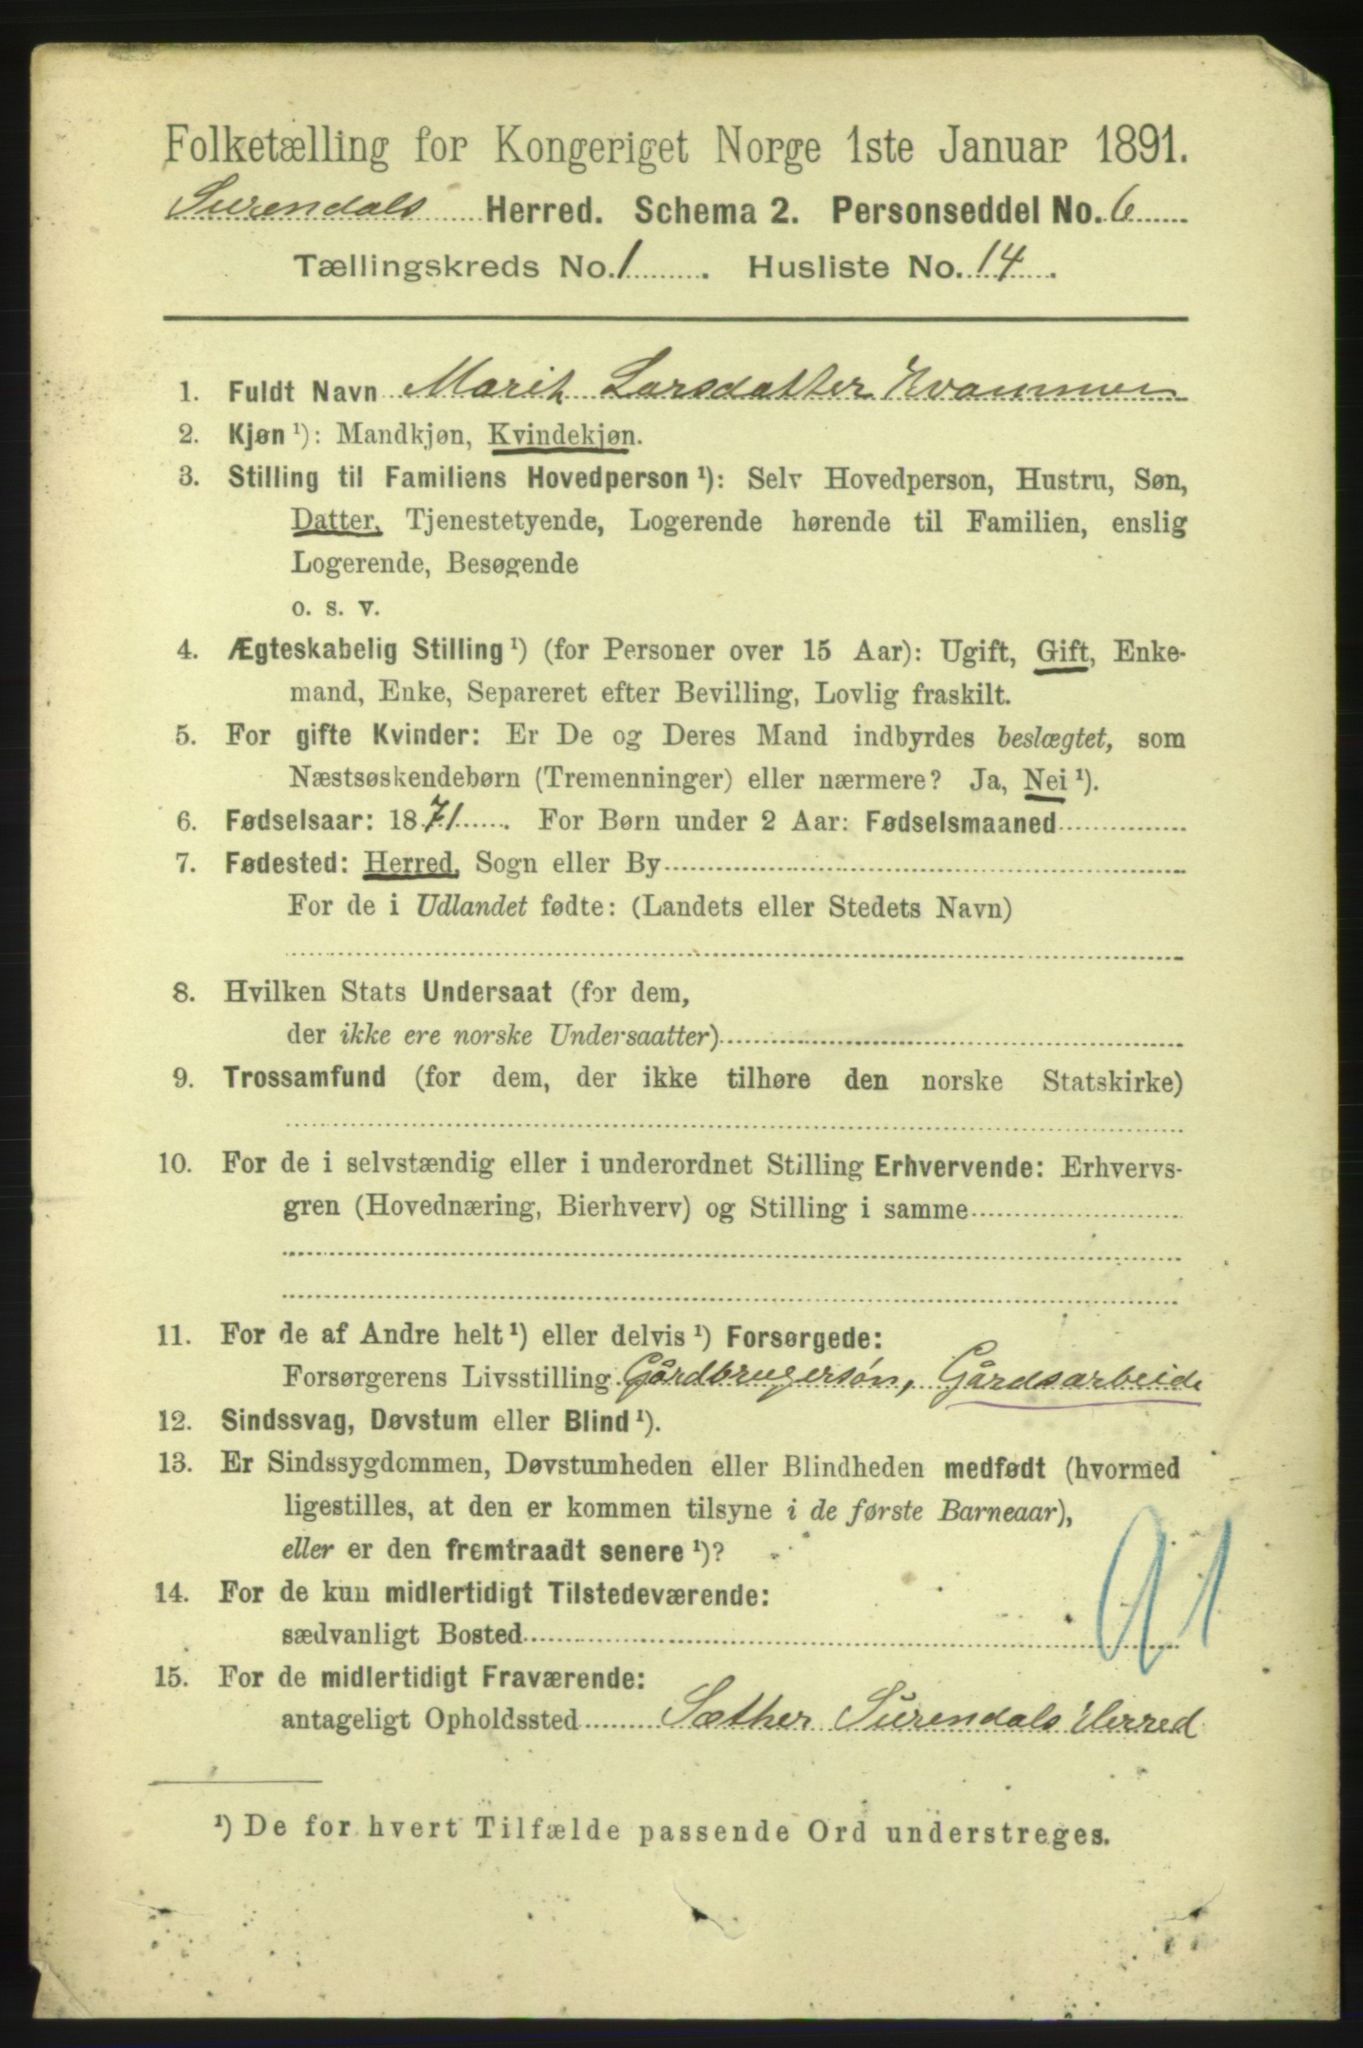 Folketælling for Kongeriget Norge 1ste Januar 1891.
Surendals Herred. Schema 2. Personseddel No. 6
Tællingskreds No. 1. Husliste No. 14.
1. Fuldt Navn Marit Larsdatter Kvammen
2. Kjøn ¹): Mandkjøn, Kvindekjøn.
3. Stilling til Familiens Hovedperson ¹): Selv Hovedperson, Hustru, Søn,
Datter, Tjenestetyende, Logerende hørende til Familien, enslig
Logerende, Besøgende
o. s. v.
4. Ægteskabelig Stilling ¹) (for Personer over 15 Aar): Ugift, Gift, Enke-
mand, Enke, Separeret efter Bevilling, Lovlig fraskilt.
5. For gifte Kvinder: Er De og Deres Mand indbyrdes beslægtet, som
Næstsøskendebørn (Tremenninger) eller nærmere? Ja, Nei ¹).
6. Fødselsaar: 1871. For Børn under 2 Aar: Fødselsmaaned
7. Fødested: Herred, Sogn eller By
For de i Udlandet fødte: (Landets eller Stedets Navn)
8. Hvilken Stats Undersaat (for dem,
der ikke ere norske Undersaatter)
9. Trossamfund (for dem, der ikke tilhøre den norske Statskirke)
10. For de i selvstændig eller i underordnet Stilling Erhvervende: Erhvervs-
gren (Hovednæring, Bierhverv) og Stilling i samme
11. For de af Andre helt ¹) eller delvis ¹) Forsørgede:
Forsørgerens Livsstilling Gårdbrugersøn, Gårdsarbeide
12. Sindssvag, Døvstum eller Blind ¹).
13. Er Sindssygdommen, Døvstumheden eller Blindheden medfødt (hvormed
ligestilles, at den er kommen tilsyne i de første Barneaar),
eller er den fremtraadt senere ¹)?
91
14. For de kun midlertidigt Tilstedeværende:
sædvanligt Bosted
15. For de midlertidigt Fraværende:
antageligt Opholdssted Sæther Surendals Herred
¹) De for hvert Tilfælde passende Ord understreges.